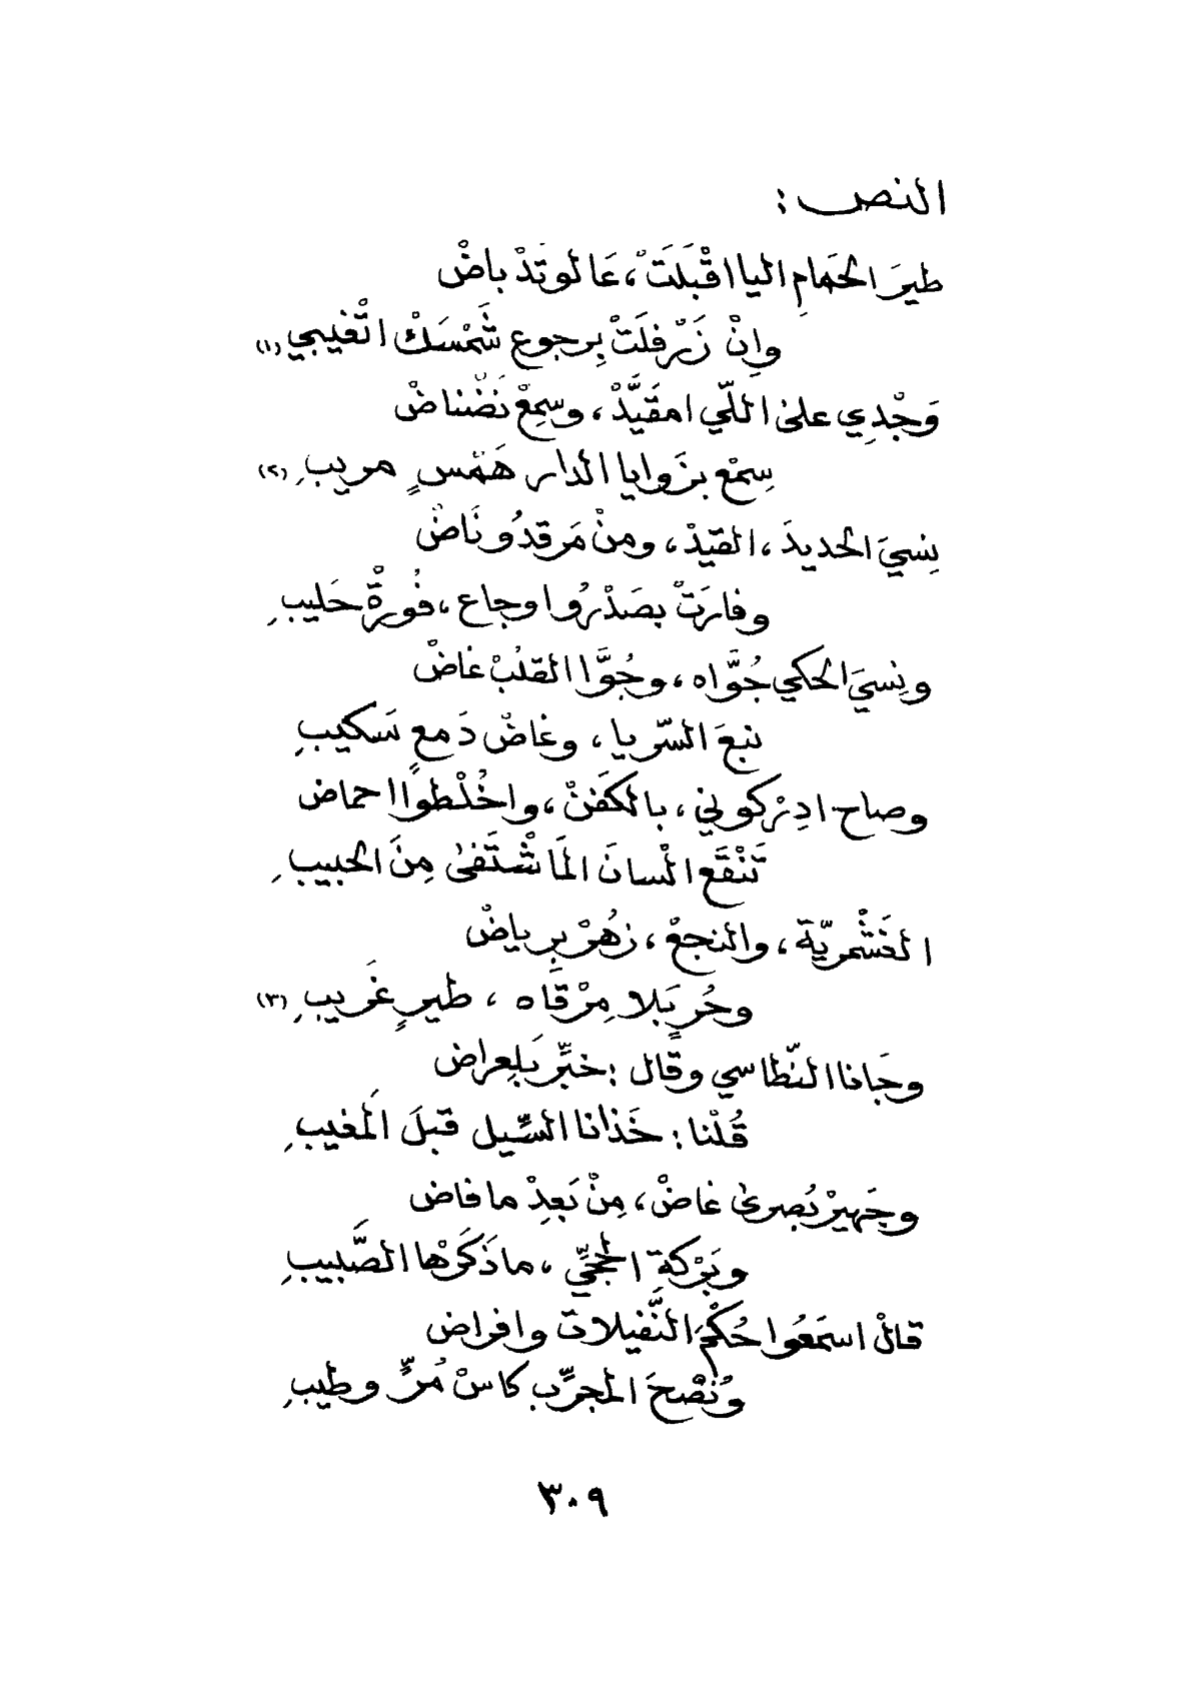 النص :
طيرَ الحَمامِ اليا اقْبَلَتْ، عَالوتَدْ باضْ
وإنْ زَرْفلَتْ بِرجوع شَمْسَكْ اتْغيبي (١)
وَجْدِي على اللّي امقَيَّدْ، وسِمِعْ نَضْناضْ
سِمْع بزَوايا الدار هَمْسٍ مريبِ (٢)
نِسيَ الحديدَ، القيْدْ، ومِنْ مَرقدُو نَاضْ
وفارَتْ بصَدْرُوا وجاع، فُورةْ حَليبِ
ونِسيَ الحكي جُوَّاه، وجُوَّا القلبْ غاضْ
نبعَ السّريا، وغاضْ دَمعٍ سَكيبِ
وصاح ادِرْكوني، بالكَفَنْ، واخْلُطوا احماض
تَنْقَع السانَ الَماشْتَفى مِنَ الحبيبِ
الغَشْمريّة، والنجعْ، زهُرْ برياضْ
وحُرٍ بَلا مِرْقَاه، طيرٍ غَريبِ (٣)
وجَانا النّطاسي وقال : خبِّر بَلِعراض
قُلْنا : خَذانا السِّيل قبلَ المغيبِ
وجَهيرْ بُصرى غاضْ، مِنْ بَعِدْ ما فاض
وبَرْكةِ الحجّيِ، ماذَكَرْها الصَّبيبِ
قالْ اسمَعُوا حُكْمَ النَّفيلات وافراض
ونُصْحَ المجرِّب كاسْ مُرٍّ وطيبِ
٣٠٩